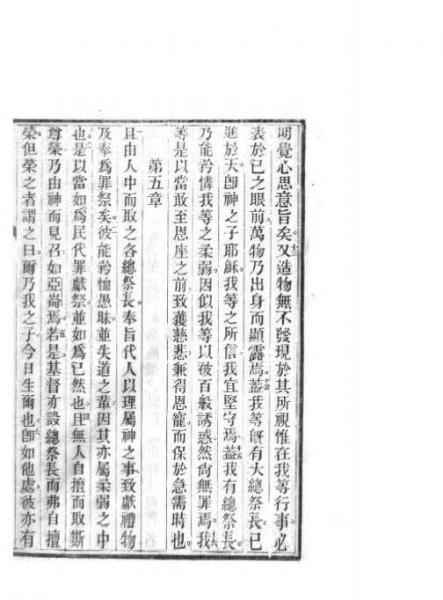 明覺心思意旨矣又造物無不發現於其所視惟在我等行事必
表於已之眼前萬物乃出身而顯露焉蓋我等旣有大總祭長已
進於天卽神之子耶穌我等之所信我宜堅守焉蓋我有總祭長
乃能矜憐我等之柔弱因似我等以被百般誘惑然尙無罪焉我
等是以當敢至恩座之前致獲慈悲兼得恩寵而保於急需時也
第五章
且由人中而取之各總祭長奉旨代人以理屬神之事致獻禮物
及奉爲罪祭矣彼能矜恤愚昧並失道之輩因其亦屬柔弱之中
也是以當如爲民代罪獻祭並如爲已然也且無人自擅而取斯
尊榮乃由神而見召如亞崙焉若是基督亦設總祭長而弗自擅
榮但榮之者謂之曰爾乃我之子今日生爾也卽如他處彼亦有